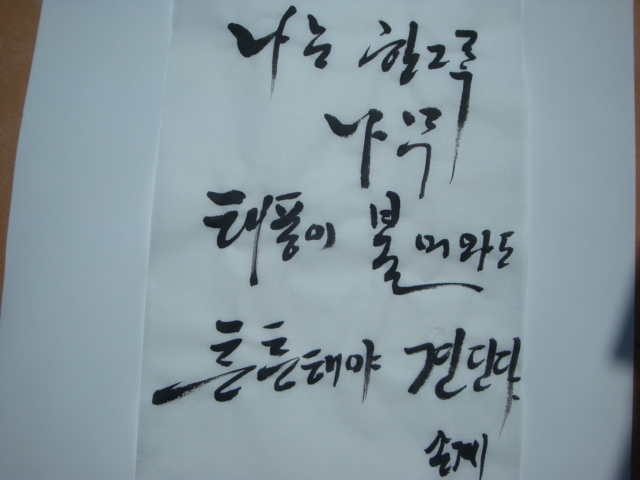 나는 한그루
나무
태풍이 불어와도
튼튼해야 견딘다
솔계